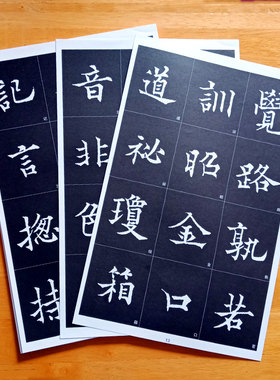 覺路孰若
訓昭金口
道祕瓊箱
音非色
記言揔持